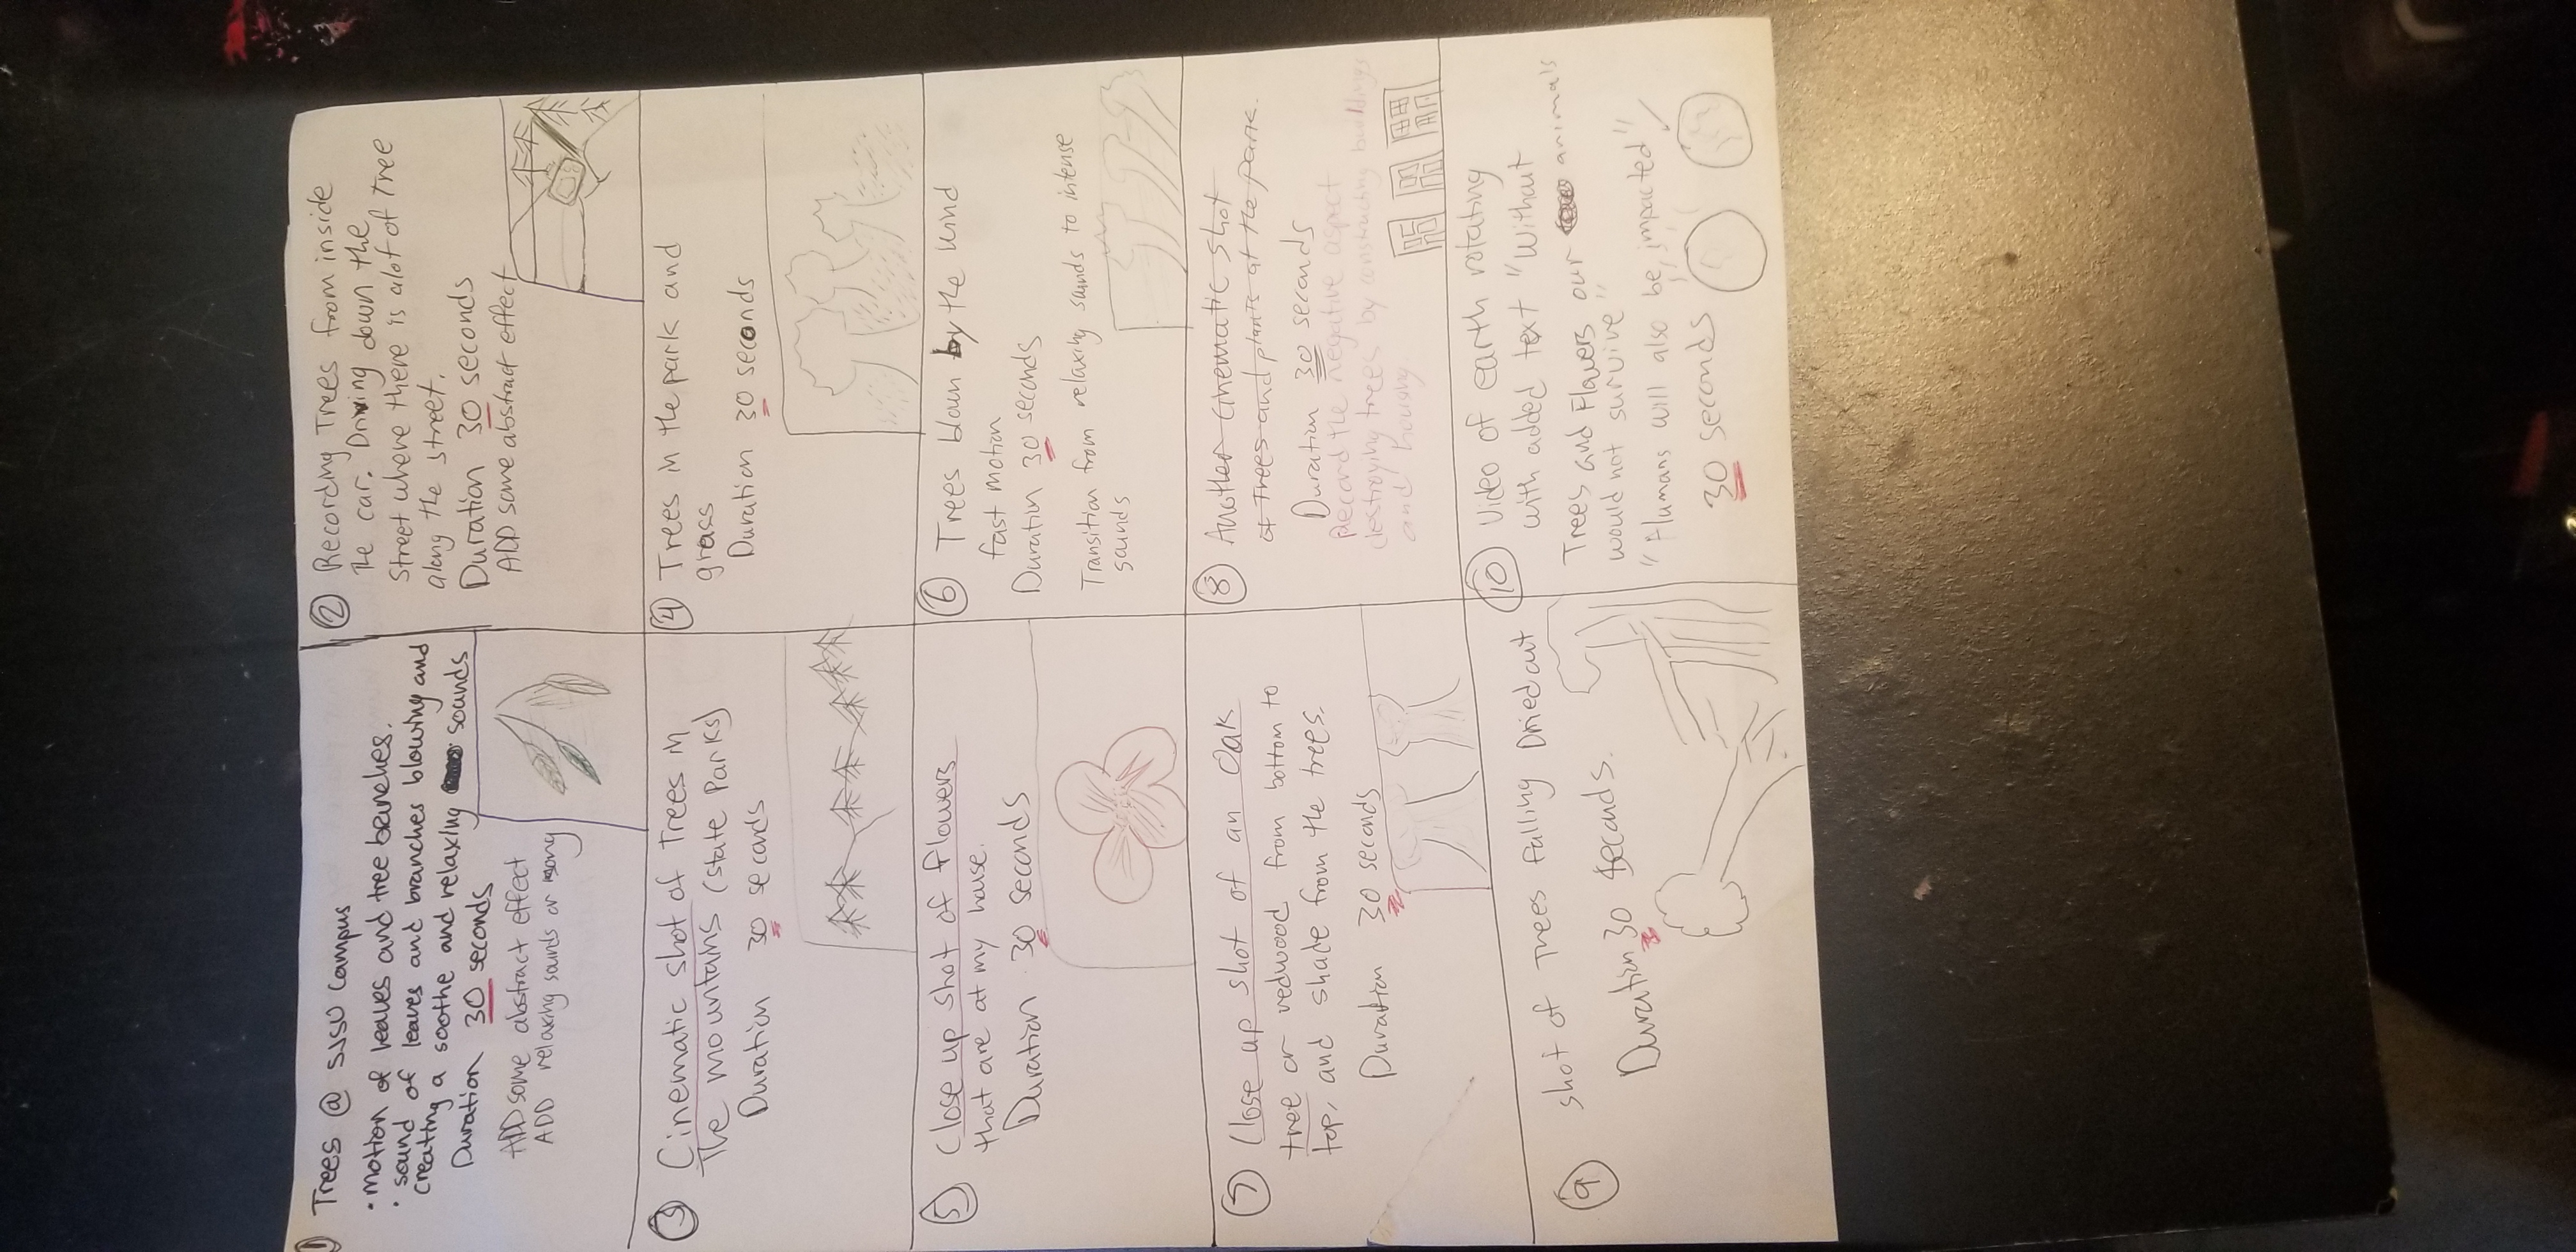 1
Trees @ SJSU Campus
• motion of leaves and tree branches.
• sound of leaves and branches blowing and
creating a soothe and relaxing sounds
Duration 30 seconds
ADD some abstract effect
ADD relaxing sounds or song
2
Recording Trees from inside
The car. Driving down the
Street where there is alot of Tree
along the street.
Duration 30 seconds
ADD some abstract effect
3
Cinematic shot of Trees in
The mountains (State Parks)
Duration 30 seconds
4
Trees in the park and
grass
Duration 30 seconds
5
Close up shot of flowers
that are at my house.
Duration 30 seconds
6
Trees blown by the wind
fast motion
Duration 30 seconds
Transition from relaxing sounds to intense
sounds
7
Close up shot of an Oak
tree or redwood from bottom to
top, and shade from the trees.
Duration 30 seconds
8
Another cinematic shot
of Trees and plants at the park.
Duration 30 seconds
Record the negative aspect
destroying trees by constructing buildings
and housing
9
shot of Trees falling Dried out
Duration 30 seconds.
10
Video of earth rotating
with added text "Without
Trees and Flowers our animals
would not survive"
"Humans will also be impacted"
30 seconds